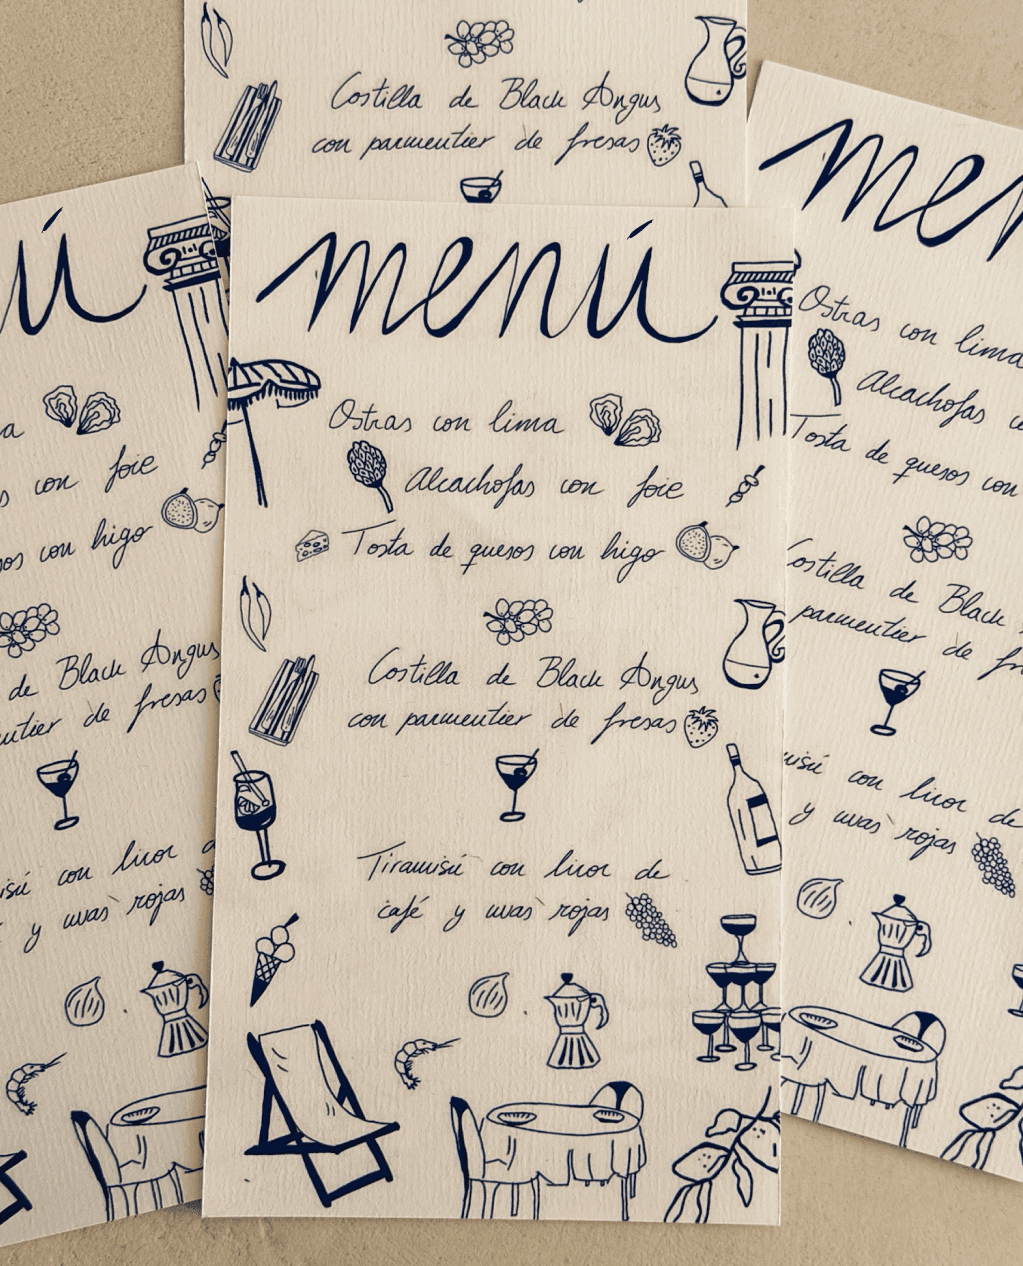 Costilla de Black Angus
con parmentier de fresas
menú
Ostras con lima
Alcachofas con foie
Tosta de quesos con higo
Costilla de Black Angus
con parmentier de fresas
Tiramisú con licor de
café y uvas rojas
ú
a
s con foie
sos con higo
de Black Angus
ntier de fresas
isú con licor d
y uvas rojas
men
Ostras con lima
Alcachofas c
Tosta de quesos con
Costilla de Black
parmentier de fr
misú con licor de
y uvas rojas